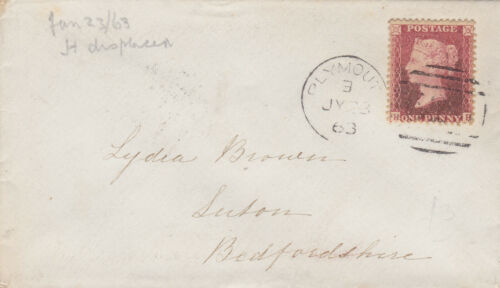 Jan 23/63
H displaced
POSTAGE
ONE PENNY
PLYMOUT
3
JY 23
63
Lydia Brown
Luton
Bedfordshire
13